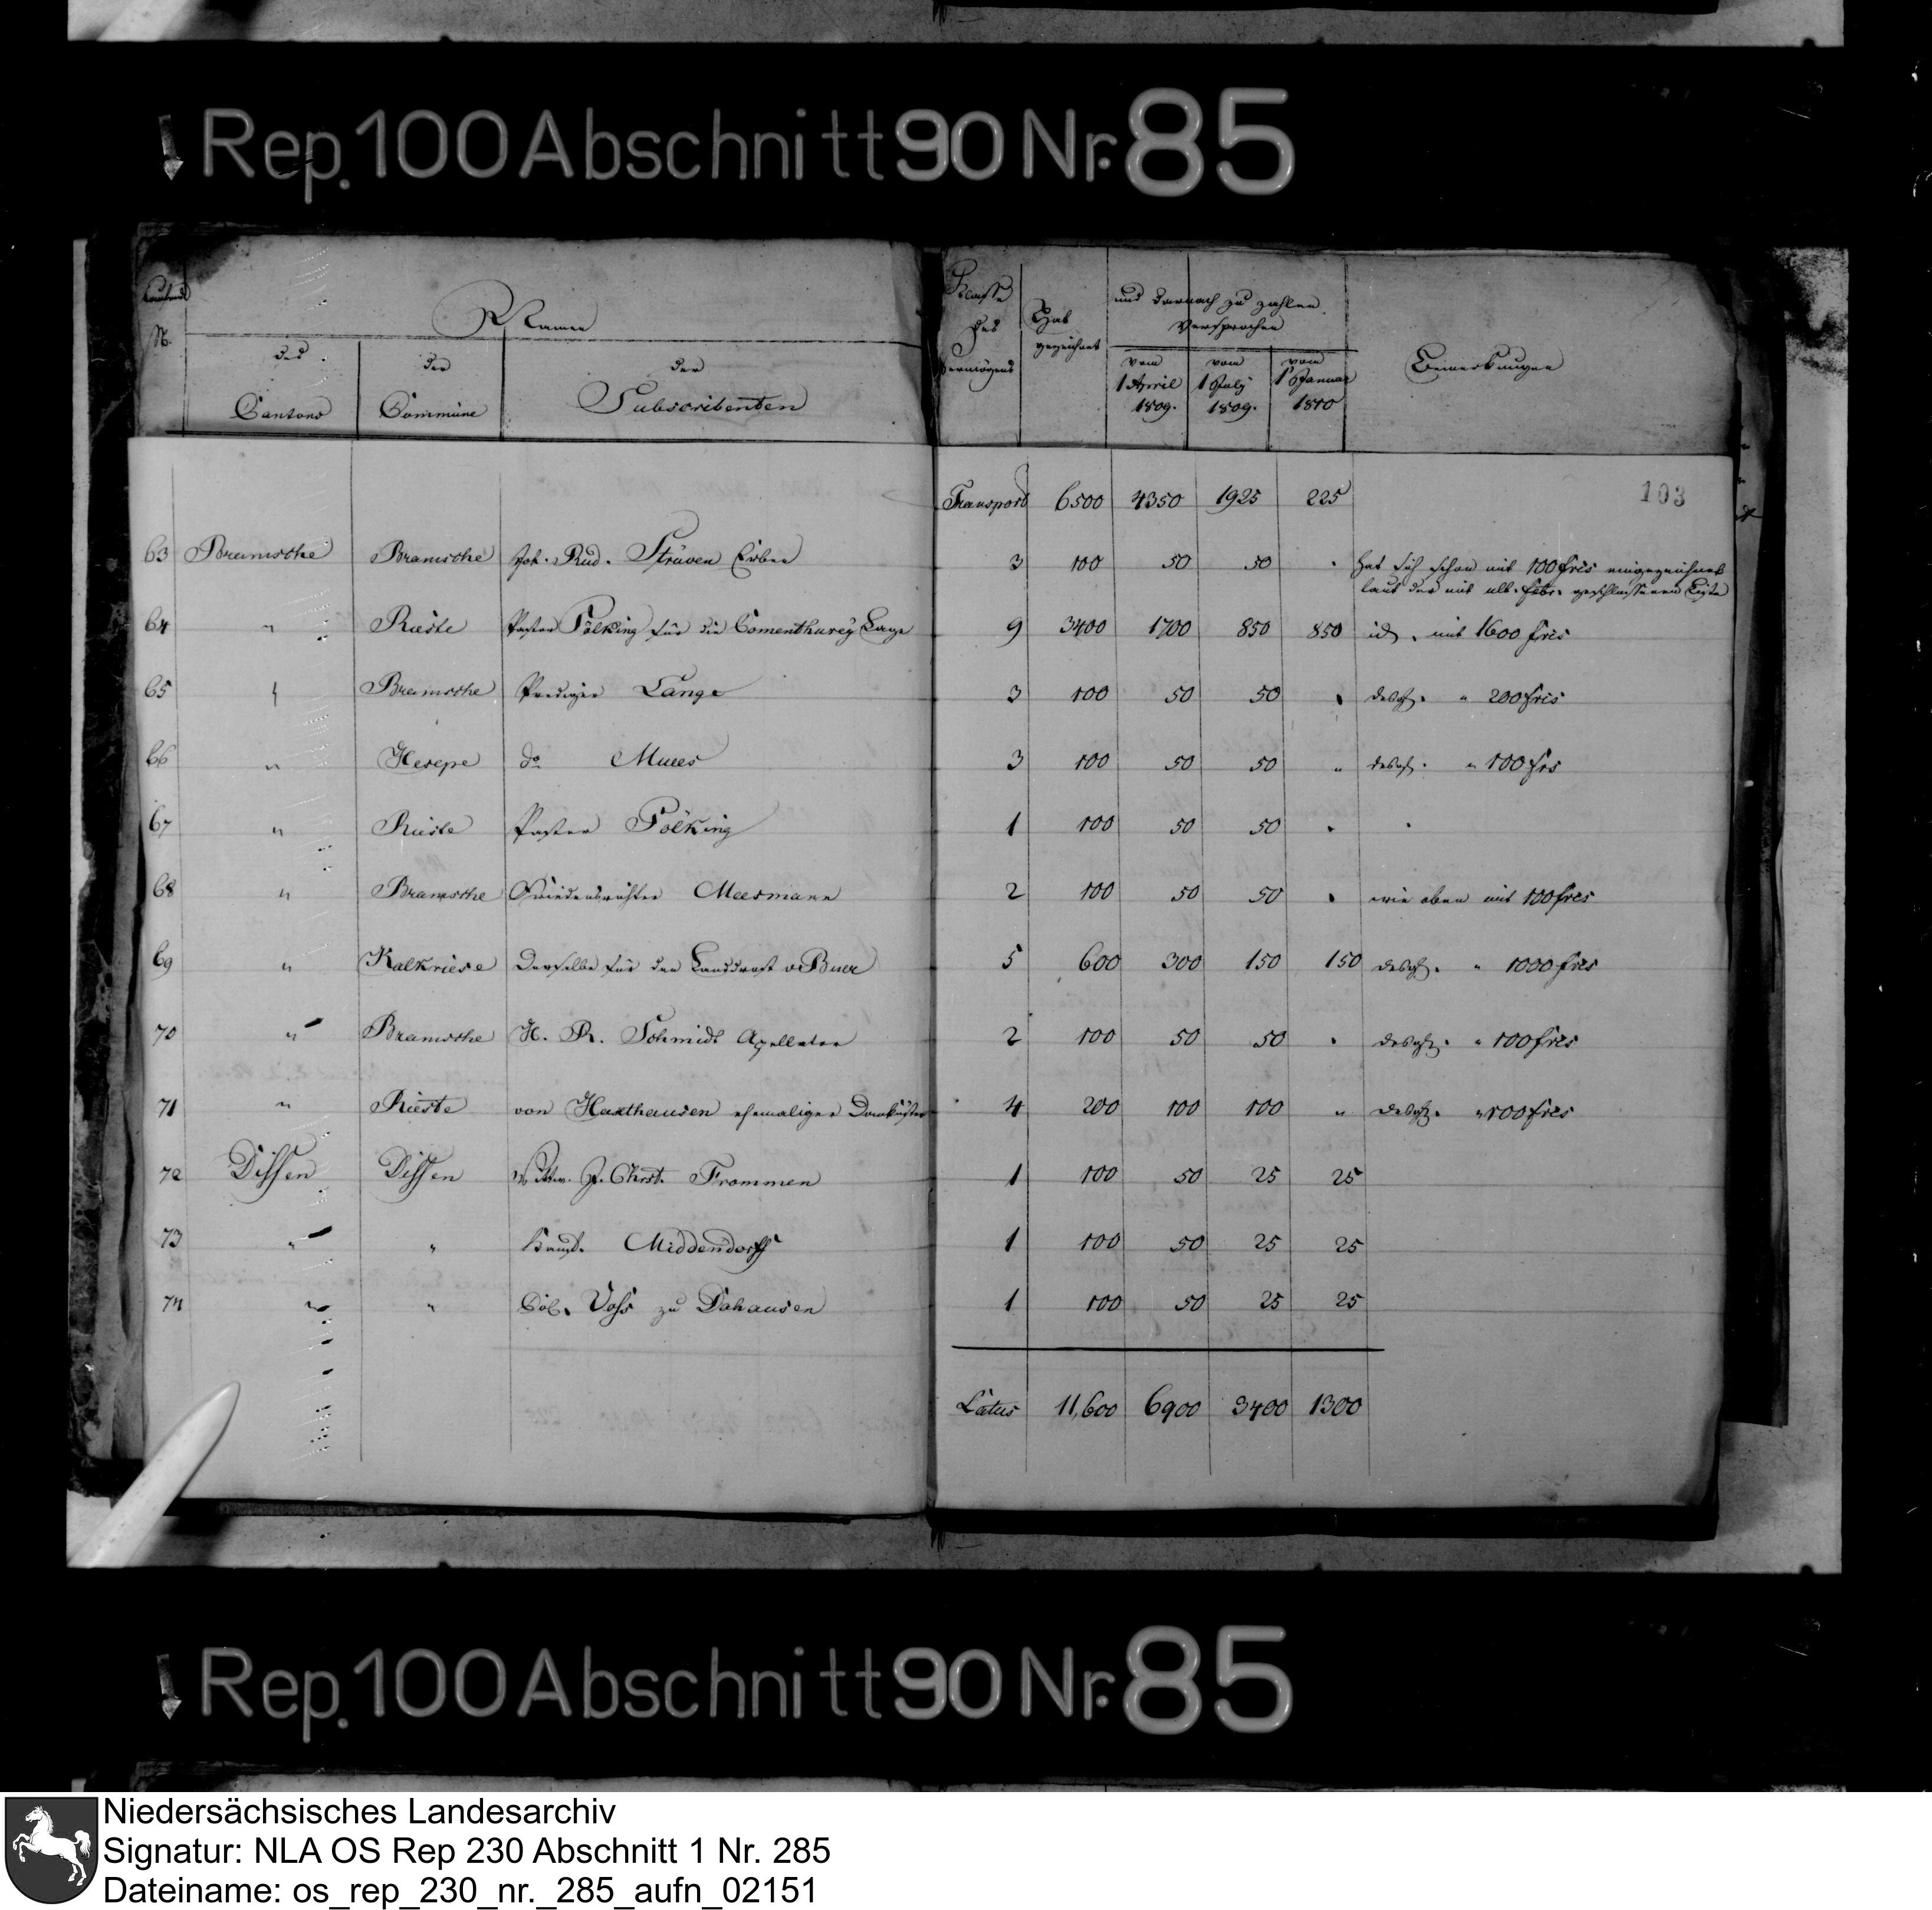 Rep. 100 Abschnitt 90 Nr. 85
Laufende No. Namen Klasse des Vermögens Hat gezeichnet und darnach zu zahlen versprochen Bemerkungen
des Cantons der Commüne der Subscribenten vom 1 April 1809. vom 1 July 1809. vom 1 Januar 1810
103
Transport 6500 4350 1925 225
63 Bramsche Bramsche Joh. Rud. Strüven Erben 3 100 50 50 . hat sich schon mit 100 frcs eingezeichnet
laut der mit ult. Febr. geschlossenen Liste
64 " Rieste Pastor Pölking für die Comenthurey Lage 9 3400 1700 850 850 id. mit 1600 frcs
65 " Bramsche Prediger Lange 3 100 50 50 . desgl. " 200 frcs
66 " Hesepe do 3 100 50 50 " desgl. " 100 frcs
67 " Rieste Pastor Pölking 1 100 50 50 . .
68 " Bramsche Friedensrichter Meesmann 2 100 50 50 . wie oben mit 100 frcs
69 " Kalkriese Derselbe für den Landdrost v. Buer 5 600 300 150 150 desgl. " 1000 frcs
70 " Bramsche H. R. Schmidt 2 100 50 50 . desgl. " 100 frcs
71 " Rieste von Haxthausen ehemaliger Domküster 4 200 100 100 " desgl. " 100 frcs
72 Dissen Dissen Wittw. J. Christ. Frommen 1 100 50 25 25
73 " " Middendorff 1 100 50 25 25
74 " " Col. Voss zu 1 100 50 25 25
Latus 11,600 6900 3400 1300
Rep. 100 Abschnitt 90 Nr. 85
Niedersächsisches Landesarchiv
Signatur: NLA OS Rep 230 Abschnitt 1 Nr. 285
Dateiname: os_rep_230_nr._285_aufn_02151